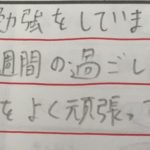 勉強をしていま
週間の過ごし
をよく頑張っ